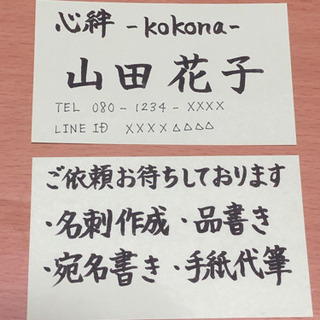 心絆 -kokona-
山田 花子
TEL 080 - 1234 - XXXX
LINE ID XXXX△△△△
ご依頼お待ちしております
・名刺作成 ・品書き
・宛名書き ・手紙代筆